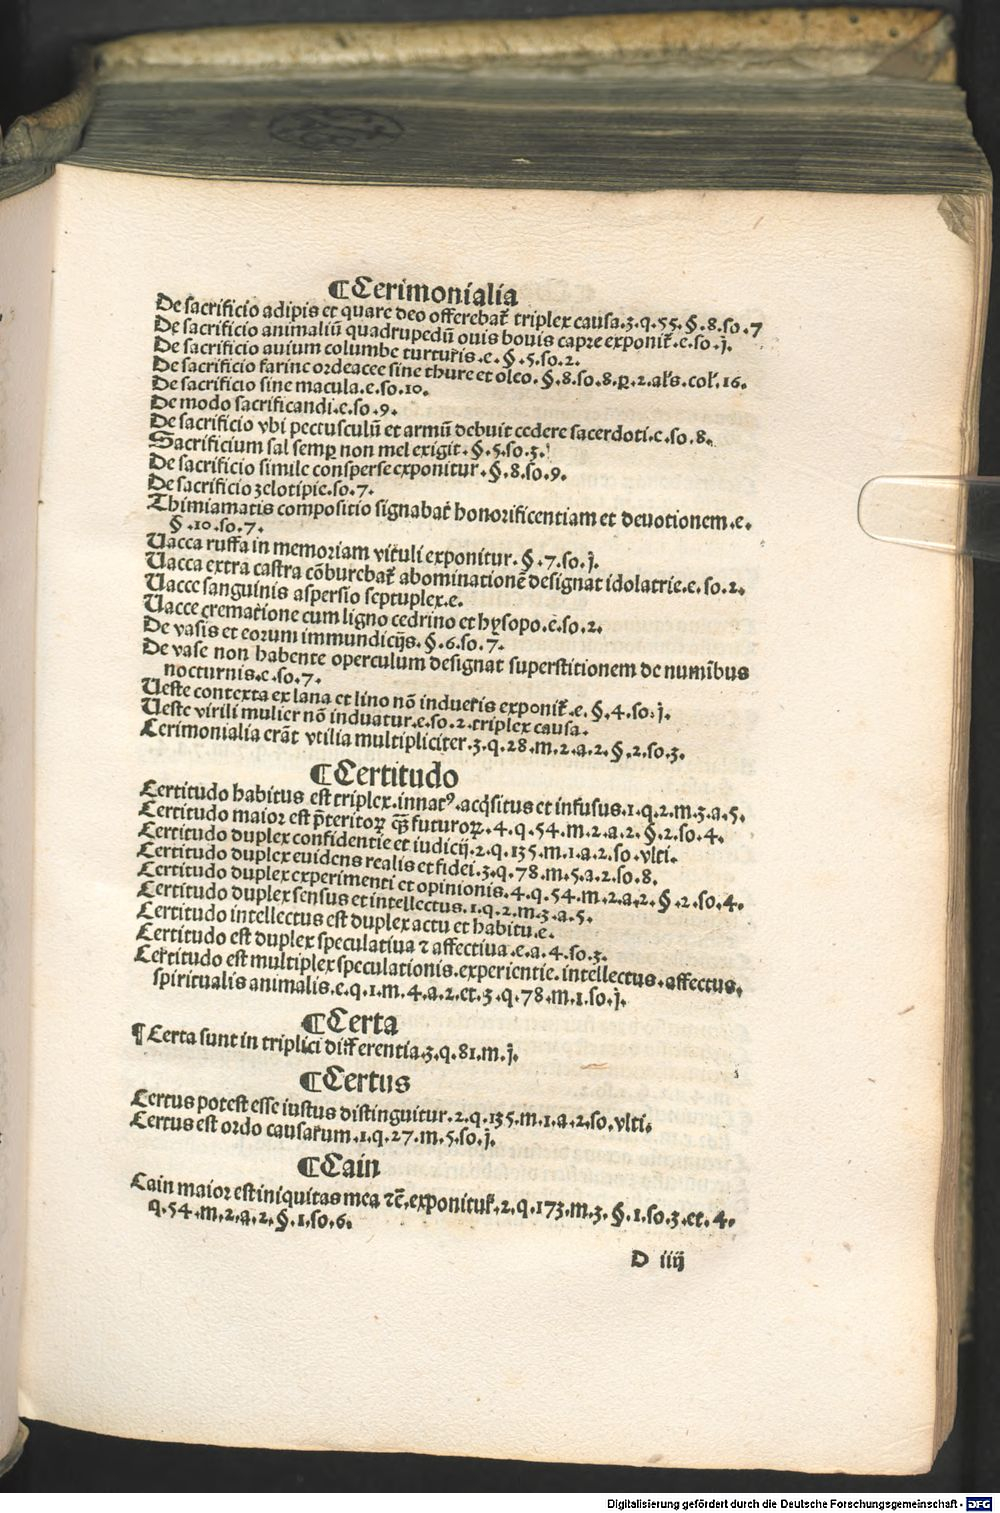 ¶Cerimonialia
De sacrificio adipis et quare deo offerebat̃ triplex causa.3.q.55.§.8.so.7
De sacrificio animaliū quadrupedū ouis bouis capre exponit̃.e.so.j.
De sacrificio auium columbe turturis.e.§.5.so.2.
De sacrificio farine ordeacee sine thure et oleo.§.8.so.8.ꝑ.2.al's.col'.16.
De sacrificio sine macula.e.so.10.
De modo sacrificandi.e.so.9.
De sacrificio vbi pectusculū et armū debuit cedere sacerdoti.e.so.8.
Sacrificium sal semꝑ non mel exigit.§.5.so.3.
De sacrificio simile consperse exponitur.§.8.so.9.
De sacrificio zelotipie.so.7.
Thimiamatis compositio signabat̃ honorificentiam et deuotionem.e.
§.10.so.7.
Uacca ruffa in memoriam vituli exponitur.§.7.so.j.
Uacca extra castra cōburebat̃ abominationē designat idolatrie.e.so.2.
Uacce sanguinis aspersio septuplex.e.
Uacce crematione cum ligno cedrino et hysopo.e.so.2.
De vasis et eorum immundicijs.§.6.so.7.
De vase non habente operculum designat superstitionem de numībus
nocturnis.e.so.7.
Ueste contexta ex lana et lino nō indueris exponit̃.e.§.4.so.j.
Ueste virili mulier nō induatur.e.so.2.triplex causa.
Cerimonialia erāt vtilia multipliciter.3.q.28.m.2.a.2.§.2.so.3.
¶Certitudo
Certitudo habitus est triplex.innatꝰ.acq̃situs et infusus.1.q.2.m.3.a.5.
Certitudo maior est p̃teritoꝝ q̃ꝫ futuroꝝ.4.q.54.m.2.a.2.§.2.so.4.
Certitudo duplex confidentie et iudicij.2.q.135.m.1.a.2.so.vlti.
Certitudo duplex euidens realis et fidei.3.q.78.m.5.a.2.so.8.
Certitudo duplex experimenti et opinionis.4.q.54.m.2.a.2.§.2.so.4.
Certitudo duplex sensus et intellectus.1.q.2.m.3.a.5.
Certitudo intellectus est duplex actu et habitu.e.
Certitudo est duplex speculatiua ⁊ affectiua.e.a.4.so.3.
Certitudo est multiplex speculationis.experientie.intellectus.affectus.
spiritualis animalis.e.q.1.m.4.a.2.et.3.q.78.m.1.so.j.
¶Certa
¶Certa sunt in triplici differentia.3.q.81.m.j.
¶Certus
Certus potest esse iustus distinguitur.2.q.135.m.1.a.2.so.vlti.
Certus est ordo causarum.1.q.27.m.5.so.j.
¶Cain
Cain maior est iniquitas mea ⁊c̄.exponitur̃.2.q.173.m.3.§.1.so.3.et.4.
q.54.m.2.a.2.§.1.so.6.
D iiij
Digitalisierung gefördert durch die Deutsche Forschungsgemeinschaft - DFG